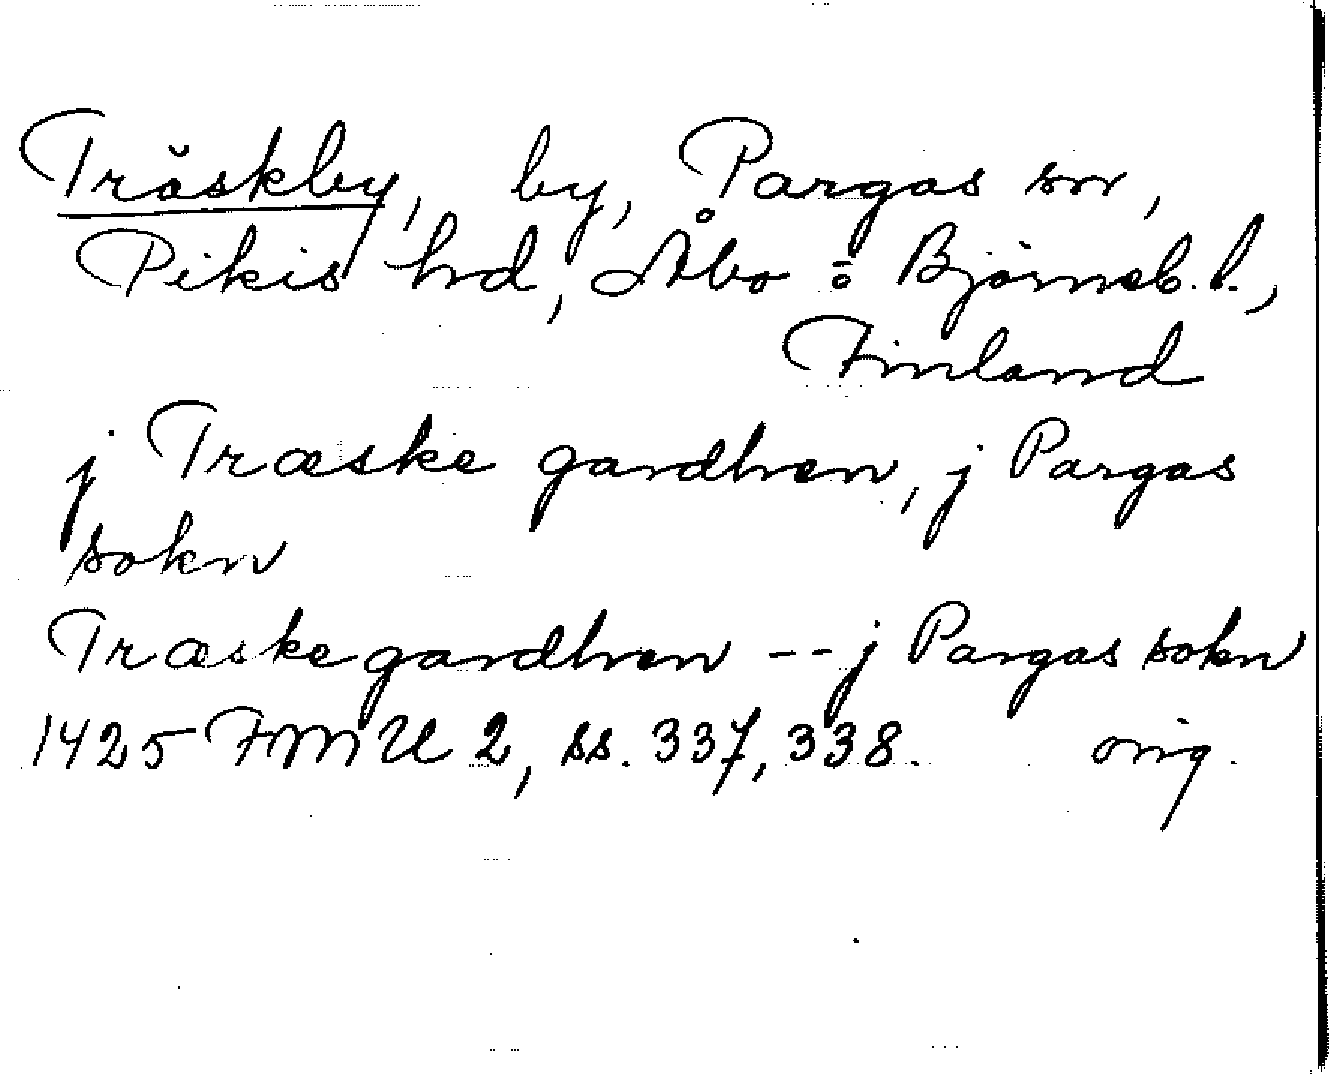 Träskby, by, Pargas sn,
Pikis hd, Åbo o Björneb. l.,
Finland
j Træske gardhen, j Pargas
sokn
Træskegardhen -- j Pargas sokn
1425 FMU 2, ss. 337, 338. orig.